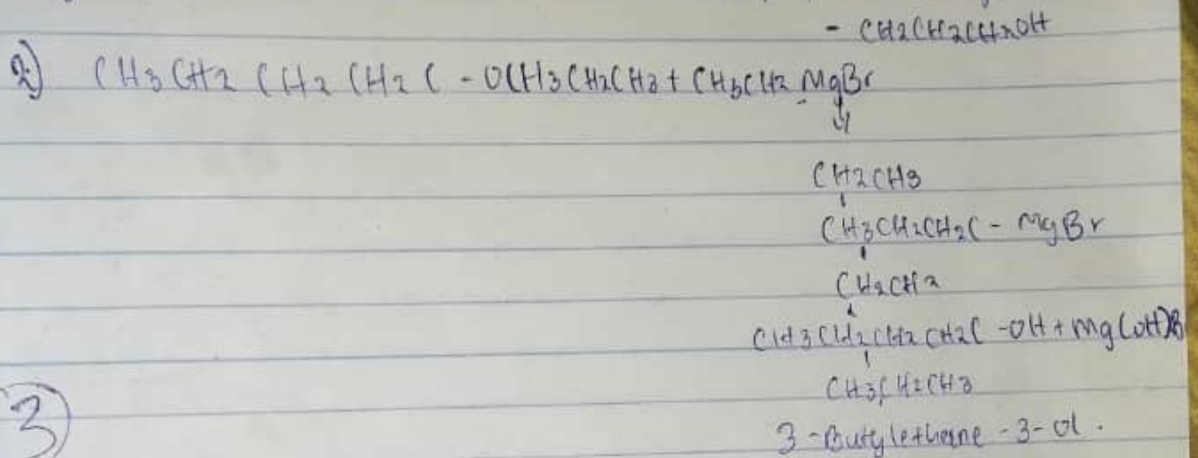 - CH2CH2CH2OH
2) CH3CH2 CH2 CH2 C - OCH3CH2CH3 + CH3CH2 MgBr
CH2CH3
CH3CH2CH2C - MgBr
CH2CH2
CH3CH2CH2CH2C - OH + Mg(OH)B
CH3CH2CH3
3 - Butylethane - 3 - ol .
3